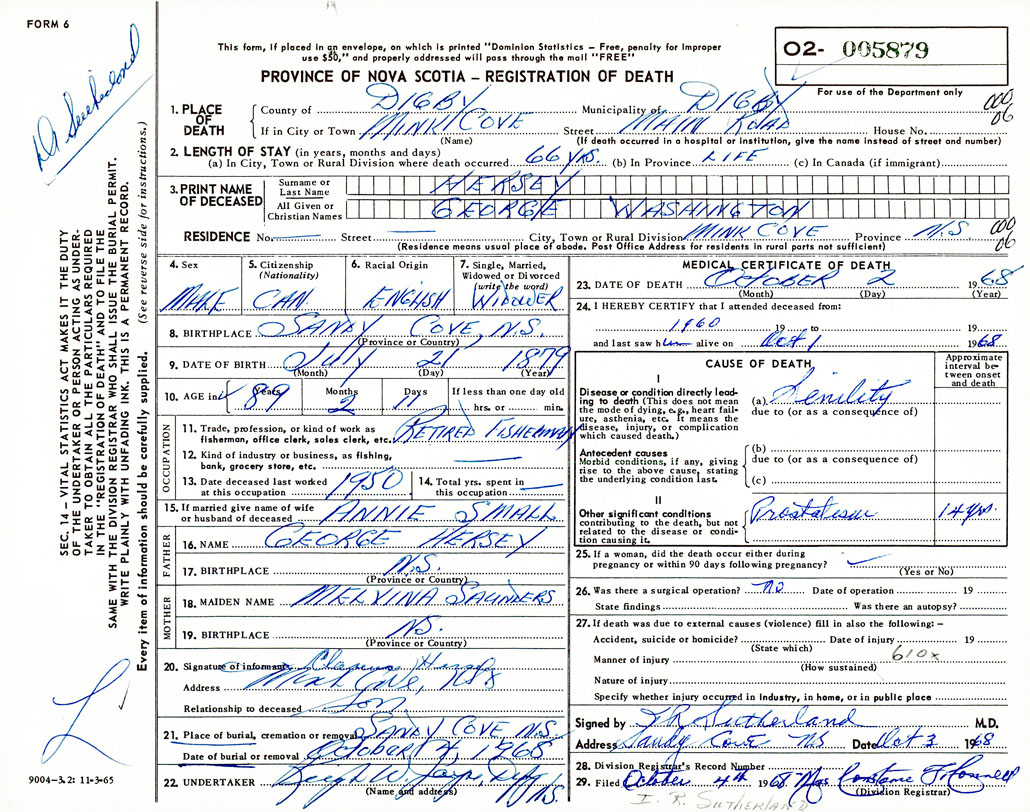 FORM 6
This form, if placed in an envelope, on which is printed "Dominion Statistics – Free, penalty for improper
use $50," and properly addressed will pass through the mail "FREE"
PROVINCE OF NOVA SCOTIA – REGISTRATION OF DEATH
02- 005879
For use of the Department only
1. PLACE OF DEATH
County of DIGBY Municipality of DIGBY
000
06
If in City or Town MINK COVE Street MAIN ROAD House No.
(Name) (If death occurred in a hospital or institution, give the name instead of street and number)
2. LENGTH OF STAY (in years, months and days)
(a) In City, Town or Rural Division where death occurred 66 YRS. (b) In Province LIFE (c) In Canada (if immigrant)
3. PRINT NAME OF DECEASED
Surname or Last Name HERSEY
All Given or Christian Names GEORGE WASHINGTON
RESIDENCE No. Street City, Town or Rural Division MINK COVE Province N.S.
000
06
(Residence means usual place of abode. Post Office Address for residents in rural parts not sufficient)
4. Sex MALE
5. Citizenship (Nationality) CAN
6. Racial Origin ENGLISH
7. Single, Married, Widowed or Divorced (write the word) WIDOWER
8. BIRTHPLACE SANDY COVE, N.S.
(Province or Country)
9. DATE OF BIRTH July 21 1879
(Month) (Day) (Year)
10. AGE in Years 89 Months 2 Days 11 If less than one day old
hrs. or min.
OCCUPATION
11. Trade, profession, or kind of work as
fisherman, office clerk, sales clerk, etc. RETIRED FISHERMAN
12. Kind of industry or business, as fishing,
bank, grocery store, etc.
13. Date deceased last worked at this occupation 1950
14. Total yrs. spent in this occupation
15. If married give name of wife
or husband of deceased ANNIE SMALL
FATHER
16. NAME GEORGE HERSEY
17. BIRTHPLACE N.S.
(Province or Country)
MOTHER
18. MAIDEN NAME MELVINA SAUNDERS
19. BIRTHPLACE NS.
(Province or Country)
20. Signature of informant
Address Mink Cove, NS
Relationship to deceased Son
21. Place of burial, cremation or removal SANDY COVE N.S.
Date of burial or removal October 4, 1968
22. UNDERTAKER
(Name and address)
MEDICAL CERTIFICATE OF DEATH
23. DATE OF DEATH OCTOBER 2 1968
(Month) (Day) (Year)
24. I HEREBY CERTIFY that I attended deceased from:
1960 19 to 19
and last saw him alive on Oct 1 1968
CAUSE OF DEATH
Approximate interval between onset and death
I
Disease or condition directly leading
to death (This does not mean
the mode of dying, e.g., heart failure,
asthenia, etc. It means the
disease, injury, or complication
which caused death.)
(a) Senility
due to (or as a consequence of)
Antecedent causes
Morbid conditions, if any, giving
rise to the above cause, stating
the underlying condition last.
(b)
due to (or as a consequence of)
(c)
II
Other significant conditions
contributing to the death, but not
related to the disease or condition
causing it.
14 yrs.
25. If a woman, did the death occur either during
pregnancy or within 90 days following pregnancy?
(Yes or No)
26. Was there a surgical operation? NO Date of operation 19
State findings Was there an autopsy?
27. If death was due to external causes (violence) fill in also the following: –
Accident, suicide or homicide? Date of injury 19
(State which)
610x
Manner of injury
(How sustained)
Nature of injury
Specify whether injury occurred in Industry, in home, or in public place
Signed by Sutherland M.D.
Address Sandy Cove NS Date Oct 3 1968
28. Division Registrar's Record Number
29. Filed October 4th 1968 Mrs
(Division Registrar)
I. R. SUTHERLAND
SEC. 14 – VITAL STATISTICS ACT MAKES IT THE DUTY
OF THE UNDERTAKER OR PERSON ACTING AS UNDERTAKER
TO OBTAIN ALL THE PARTICULARS REQUIRED
IN THE "REGISTRATION OF DEATH" AND TO FILE THE
SAME WITH THE DIVISION REGISTRAR WHO SHALL ISSUE THE BURIAL PERMIT.
WRITE PLAINLY WITH UNFADING INK. THIS IS A PERMANENT RECORD.
Every item of information should be carefully supplied. (See reverse side for instructions.)
9004–3.2: 11-3-65